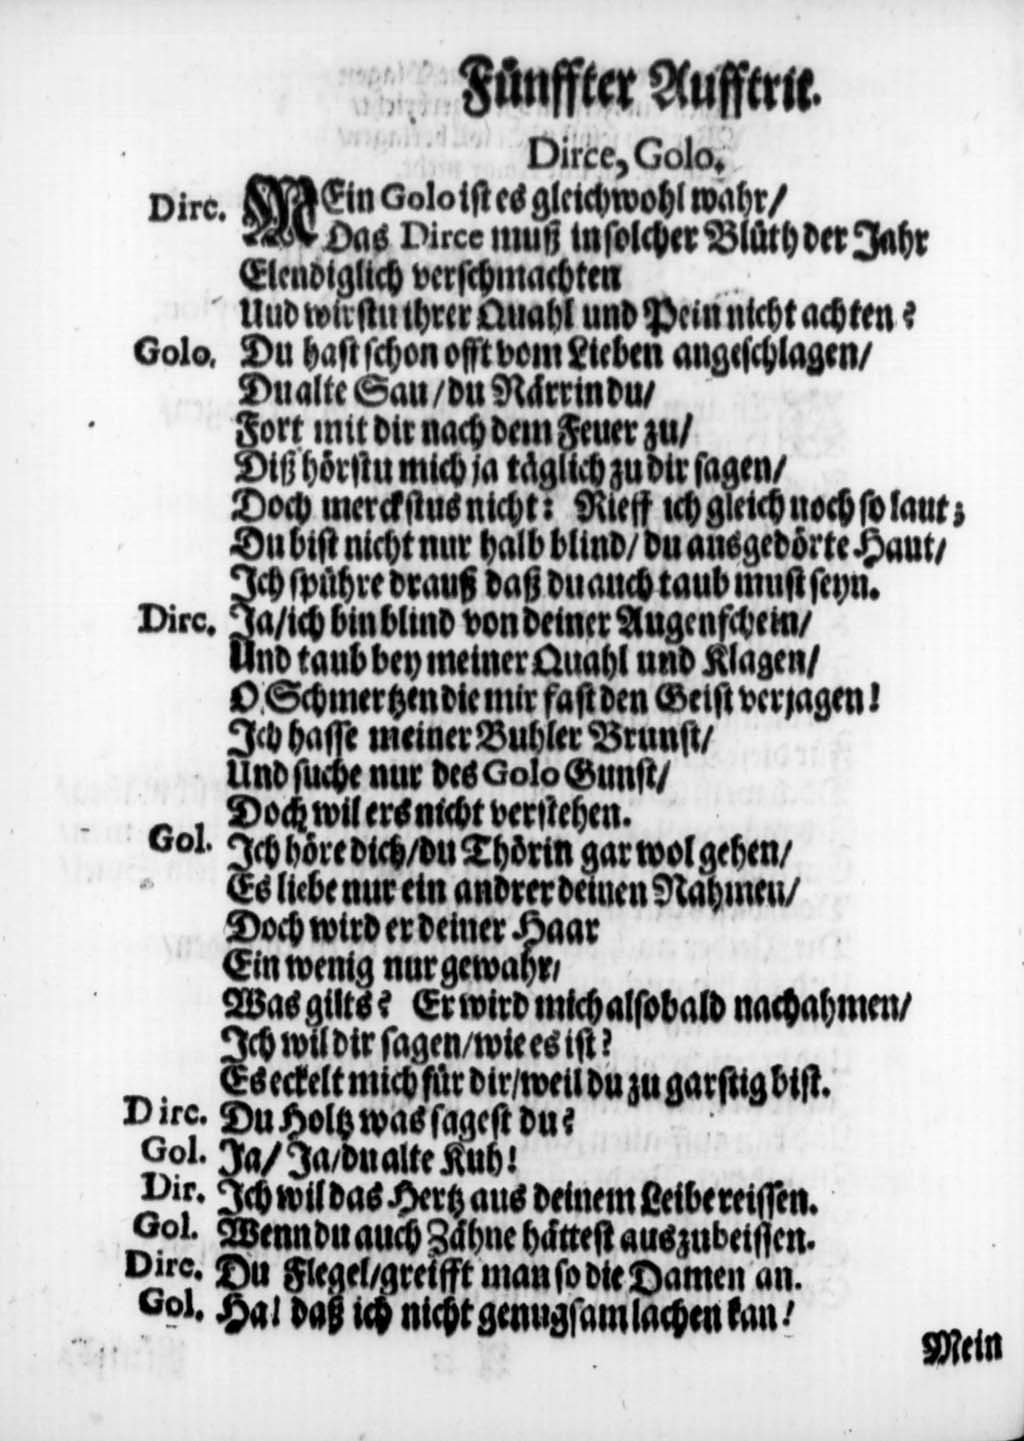 Fünffter Aufftrit.
Dirce, Golo.
Dirc. MEin Golo ist es gleichwohl wahr/
Das Dirce muß in solcher Blüth der Jahr
Elendiglich verschmachten
Und wirstu ihrer Quahl und Pein nicht achten?
Golo. Du hast schon offt vom Lieben angeschlagen/
Du alte Sau/du Närrin du/
Fort mit dir nach dem Feuer zu/
Diß hörstu mich ja täglich zu dir sagen/
Doch merckstus nicht: Rieff ich gleich noch so laut;
Du bist nicht nur halb blind/du ausgedörte Haut/
Ich spühre drauß daß du auch taub must seyn.
Dirc. Ja/ich bin blind von deiner Augenschein/
Und taub bey meiner Quahl und Klagen/
O Schmertzen die mir fast den Geist verjagen!
Ich hasse meiner Buhler Brunst/
Und suche nur des Golo Gunst/
Doch wil ers nicht verstehen.
Gol. Ich höre dich/du Thörin gar wol gehen/
Es liebe nur ein andrer deinen Nahmen/
Doch wird er deiner Haar
Ein wenig nur gewahr/
Was gilts? Er wird mich alsobald nachahmen/
Ich wil dir sagen/wie es ist?
Es eckelt mich für dir/weil du zu garstig bist.
Dirc. Du Holtz was sagest du?
Gol. Ja/ Ja/du alte Kuh!
Dir. Ich wil das Hertz aus deinem Leibe reissen.
Gol. Wenn du auch Zähne hättest auszubeissen.
Dirc. Du Flegel/greifft man so die Damen an.
Gol. Ha! daß ich nicht genugsam lachen kan!
Mein